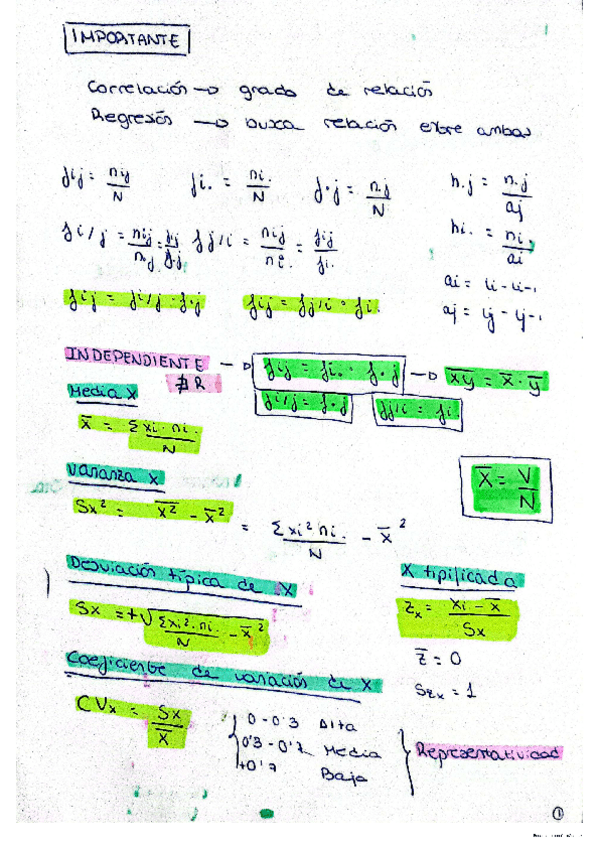 IMPORTANTE
Correlación → grado de relación
Regresión → busca relación entre ambas
fij = nij/N   fi. = ni./N   f.j = n.j/N   h.j = n.j/aj
fi/j = nij/n.j = fij/f.j   fj/i = nij/ni. = fij/fi.   hi. = ni./ai
ai = Li - Li-1
fij = fi/j · f.j   fij = fj/i · fi.   aj = Lj - Lj-1
INDEPENDIENTE → fij = fi. · f.j → x̅y̅ = x̅ · y̅
∄ R   fi/j = f.j   fj/i = fi.
Media X
x̅ = Σ xi · ni. / N
Varianza X   X̅ = V/N
Sx² = x̅²̅ - x̅² = Σ xi² ni. / N - x̅²
Desviación típica de X   X tipificada
Sx = +√(Σ xi² · ni. / N - x̅²)   Zx = (xi - x̅)/Sx
z̅ = 0
Coeficiente de variación de X   Szx = 1
CVx = Sx/X̅   0 - 0'3 Alta
0'3 - 0'7 Media   Representatividad
+0'7 Baja
1